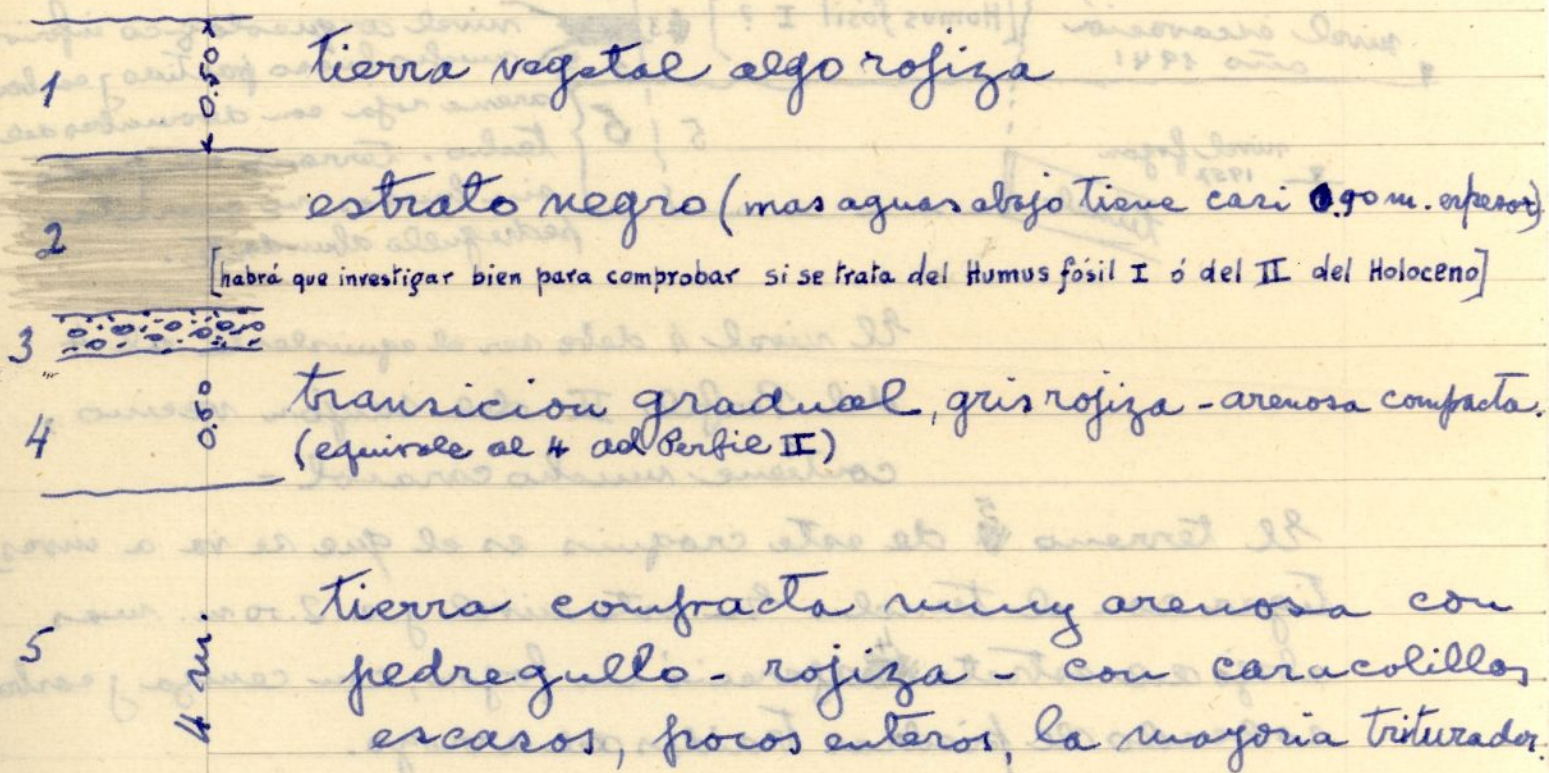 1 0.50 tierra vegetal algo rojiza
2 estrato negro (mas aguas abajo tiene casi 0.90 m. espesor)
[habrá que investigar bien para comprobar si se trata del Humus fósil I ó del II del Holoceno]
3
4 0.60 transicion gradual, gris rojiza - arenosa compacta.
(equivale al 4 del Perfil II)
5 4 m. tierra compacta muy arenosa con
pedregullo - rojiza - con caracolillos
escasos, pocos enteros, la mayoria triturados.